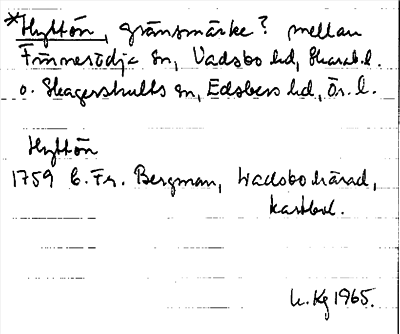 *Hyttön, gränsmärke? mellan
Finnerödja sn, Vadsbo hd, Skarab.l.
o. Skagershults sn, Edsbergs hd, Ör. l.
Hyttön
1759 C. Fr. Bergman, Wadsbo härad,
kartbl.
L. Kg 1965.